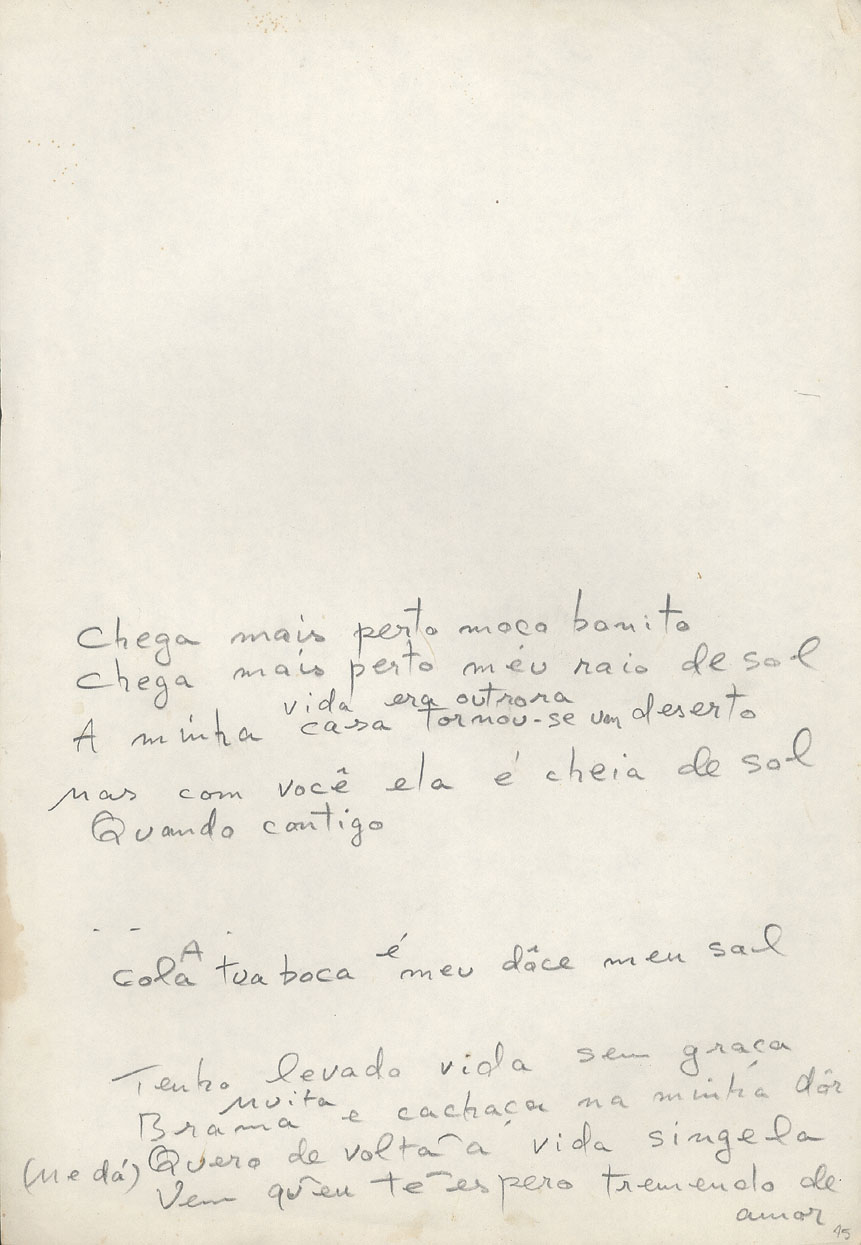 Chega mais perto moço bonito
chega mais perto meu raio de sol
vida era outrora
A minha casa tornou-se um deserto
mas com você ela é cheia de sol
Quando contigo
A é
cola tua boca meu dôce meu sal
Tenho levado vida sem graça
Muita
Brama e cachaça na minha dôr
(Me dá) Quero de volta a vida singela
Vem qu'eu te espero tremendo de
amor
45